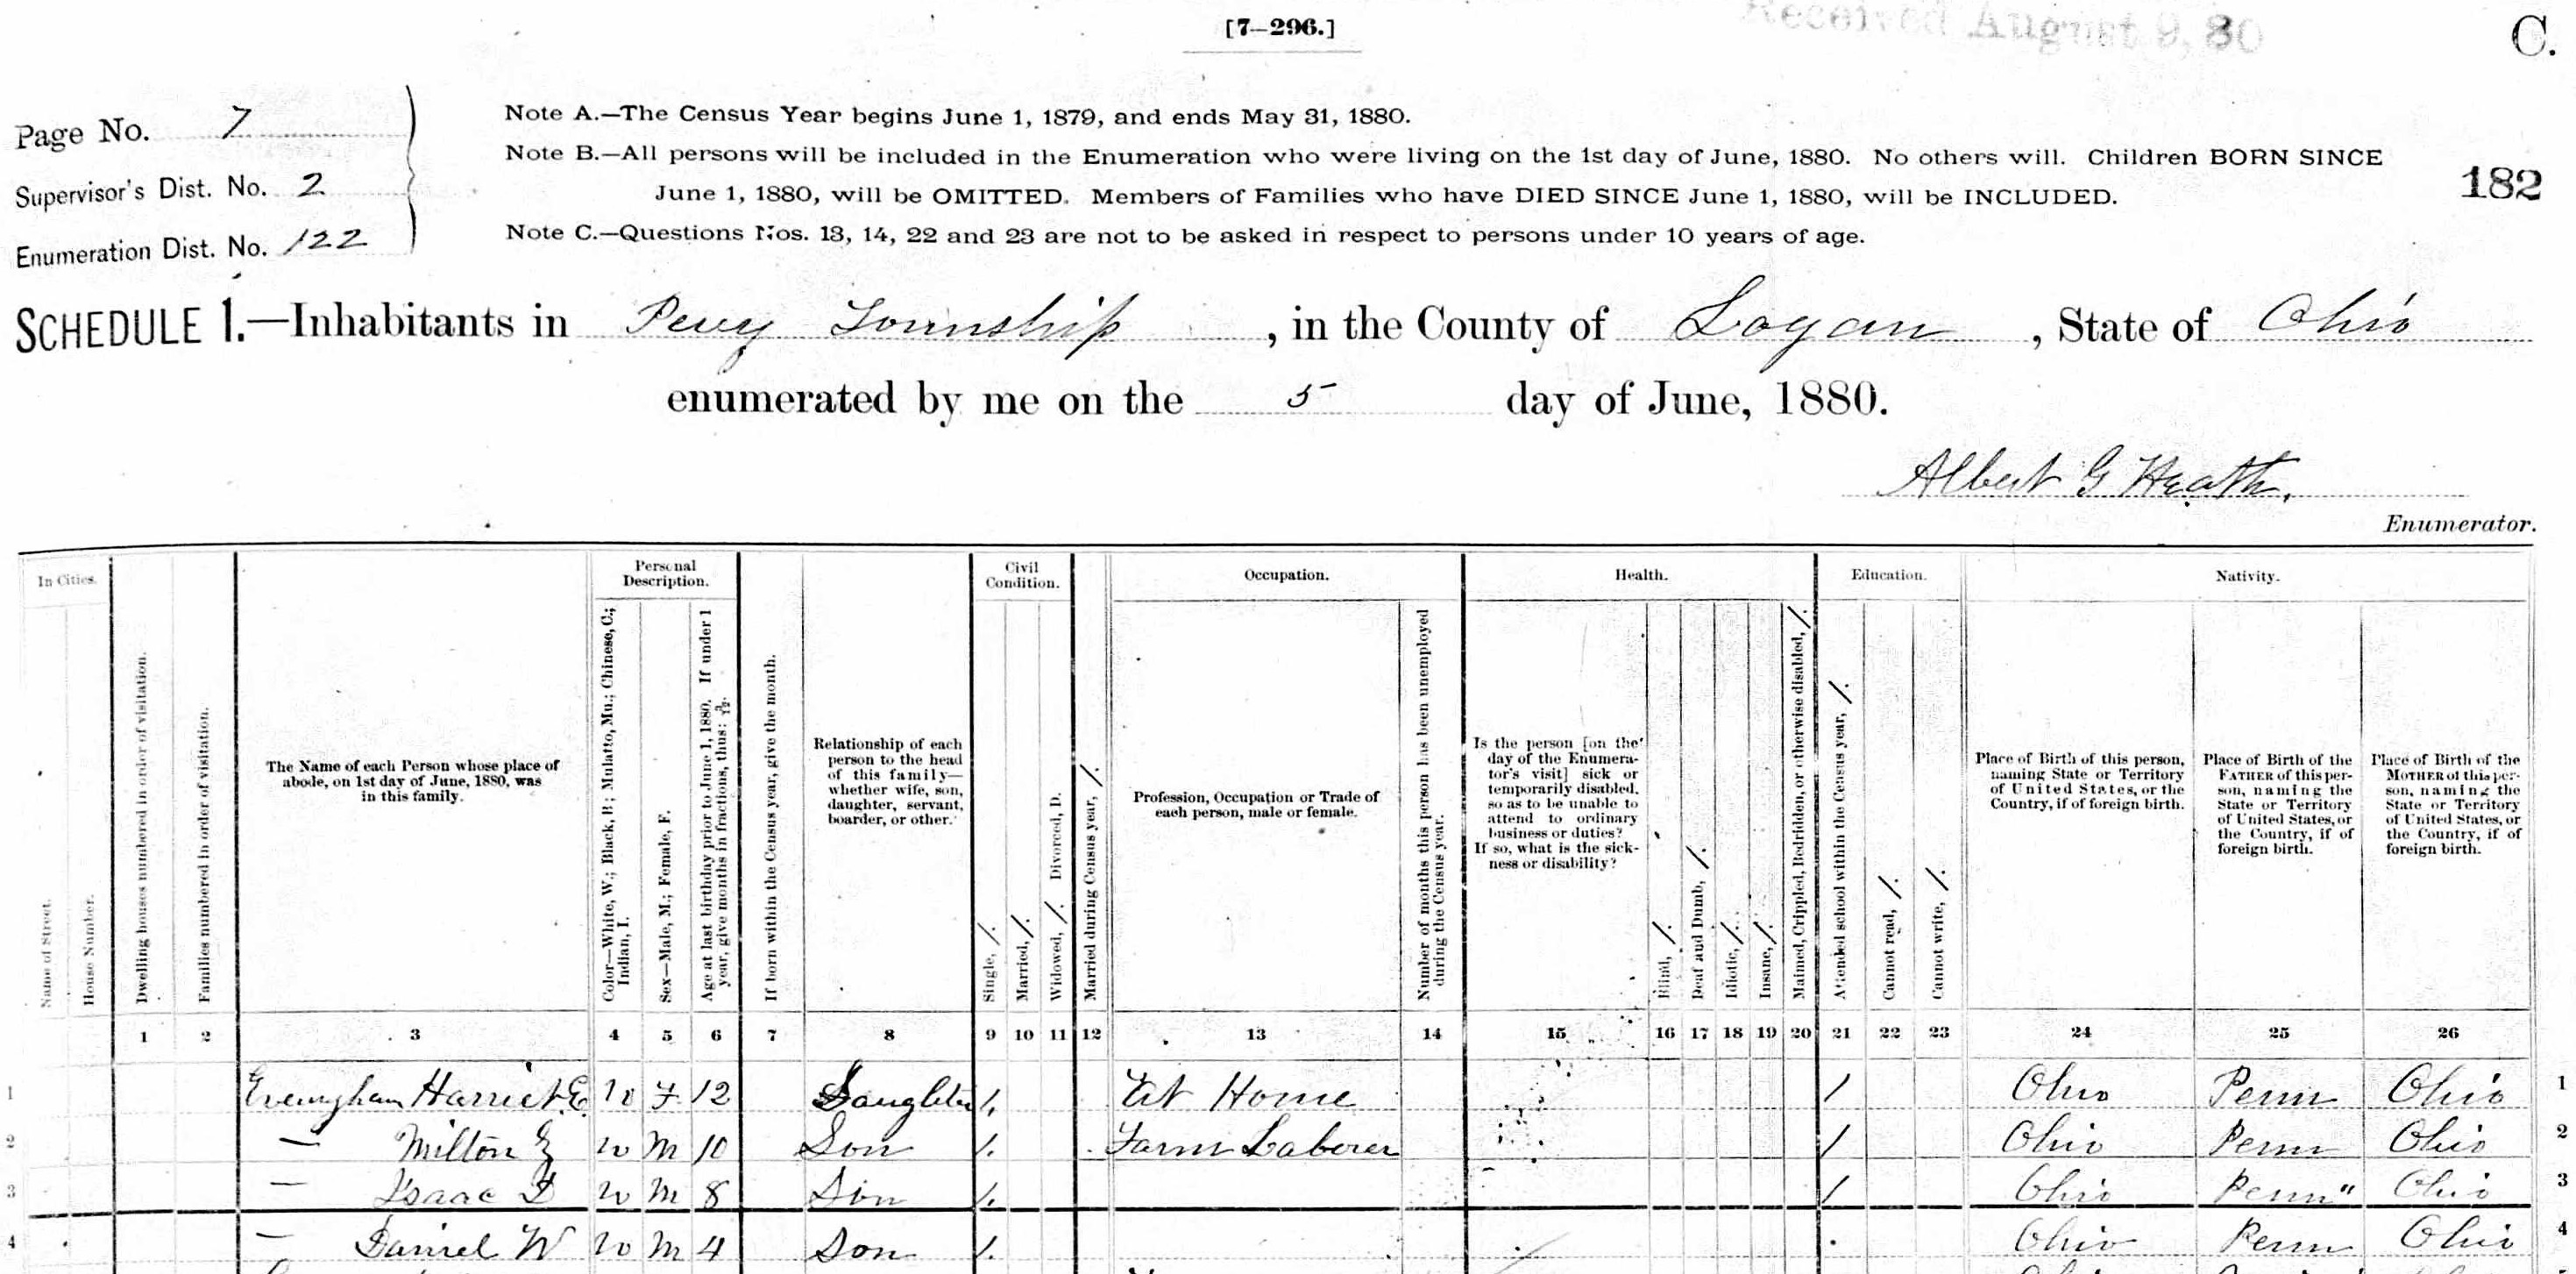 [7–296.]
Received August 9, 80
C.
Page No. 7
Supervisor's Dist. No. 2
Enumeration Dist. No. 122
Note A.—The Census Year begins June 1, 1879, and ends May 31, 1880.
Note B.—All persons will be included in the Enumeration who were living on the 1st day of June, 1880. No others will. Children BORN SINCE
June 1, 1880, will be OMITTED. Members of Families who have DIED SINCE June 1, 1880, will be INCLUDED.
Note C.—Questions Nos. 13, 14, 22 and 23 are not to be asked in respect to persons under 10 years of age.
182
SCHEDULE 1.—Inhabitants in Perry Township, in the County of Logan, State of Ohio
enumerated by me on the 5 day of June, 1880.
Albert G Heath.
Enumerator.
In Cities.
Name of Street.
House Number.
Dwelling houses numbered in order of visitation.
Families numbered in order of visitation.
The Name of each Person whose place of
abode, on 1st day of June, 1880, was
in this family.
Personal
Description.
Color—White, W.; Black, B.; Mulatto, Mu.; Chinese, C.;
Indian, I.
Sex—Male, M.; Female, F.
Age at last birthday prior to June 1, 1880. If under 1
year, give months in fractions, thus: 3/12.
If born within the Census year, give the month.
Relationship of each
person to the head
of this family—
whether wife, son,
daughter, servant,
boarder, or other.
Civil
Condition.
Single, /.
Married, /.
Widowed, /. Divorced, D.
Married during Census year, /.
Occupation.
Profession, Occupation or Trade of
each person, male or female.
Number of months this person has been unemployed
during the Census year.
Health.
Is the person [on the
day of the Enumera-
tor's visit] sick or
temporarily disabled,
so as to be unable to
attend to ordinary
business or duties?
If so, what is the sick-
ness or disability?
Blind, /.
Deaf and Dumb, /.
Idiotic, /.
Insane, /.
Maimed, Crippled, Bedridden, or otherwise disabled, /.
Education.
Attended school within the Census year, /.
Cannot read, /.
Cannot write, /.
Nativity.
Place of Birth of this person,
naming State or Territory
of United States, or the
Country, if of foreign birth.
Place of Birth of the
FATHER of this per-
son, naming the
State or Territory
of United States, or
the Country, if of
foreign birth.
Place of Birth of the
MOTHER of this per-
son, naming the
State or Territory
of United States, or
the Country, if of
foreign birth.
1 2 3 4 5 6 7 8 9 10 11 12 13 14 15 16 17 18 19 20 21 22 23 24 25 26
1 Evengham Harriet E. W F 12 Daughter /. At Home / Ohio Penn Ohio 1
2 — Milton W M 10 Son /. Farm Laborer / Ohio Penn Ohio 2
3 — Isaac W M 8 Son /. / Ohio Penn" Ohio 3
4 — Daniel W W M 4 Son /. Ohio Penn Ohio 4